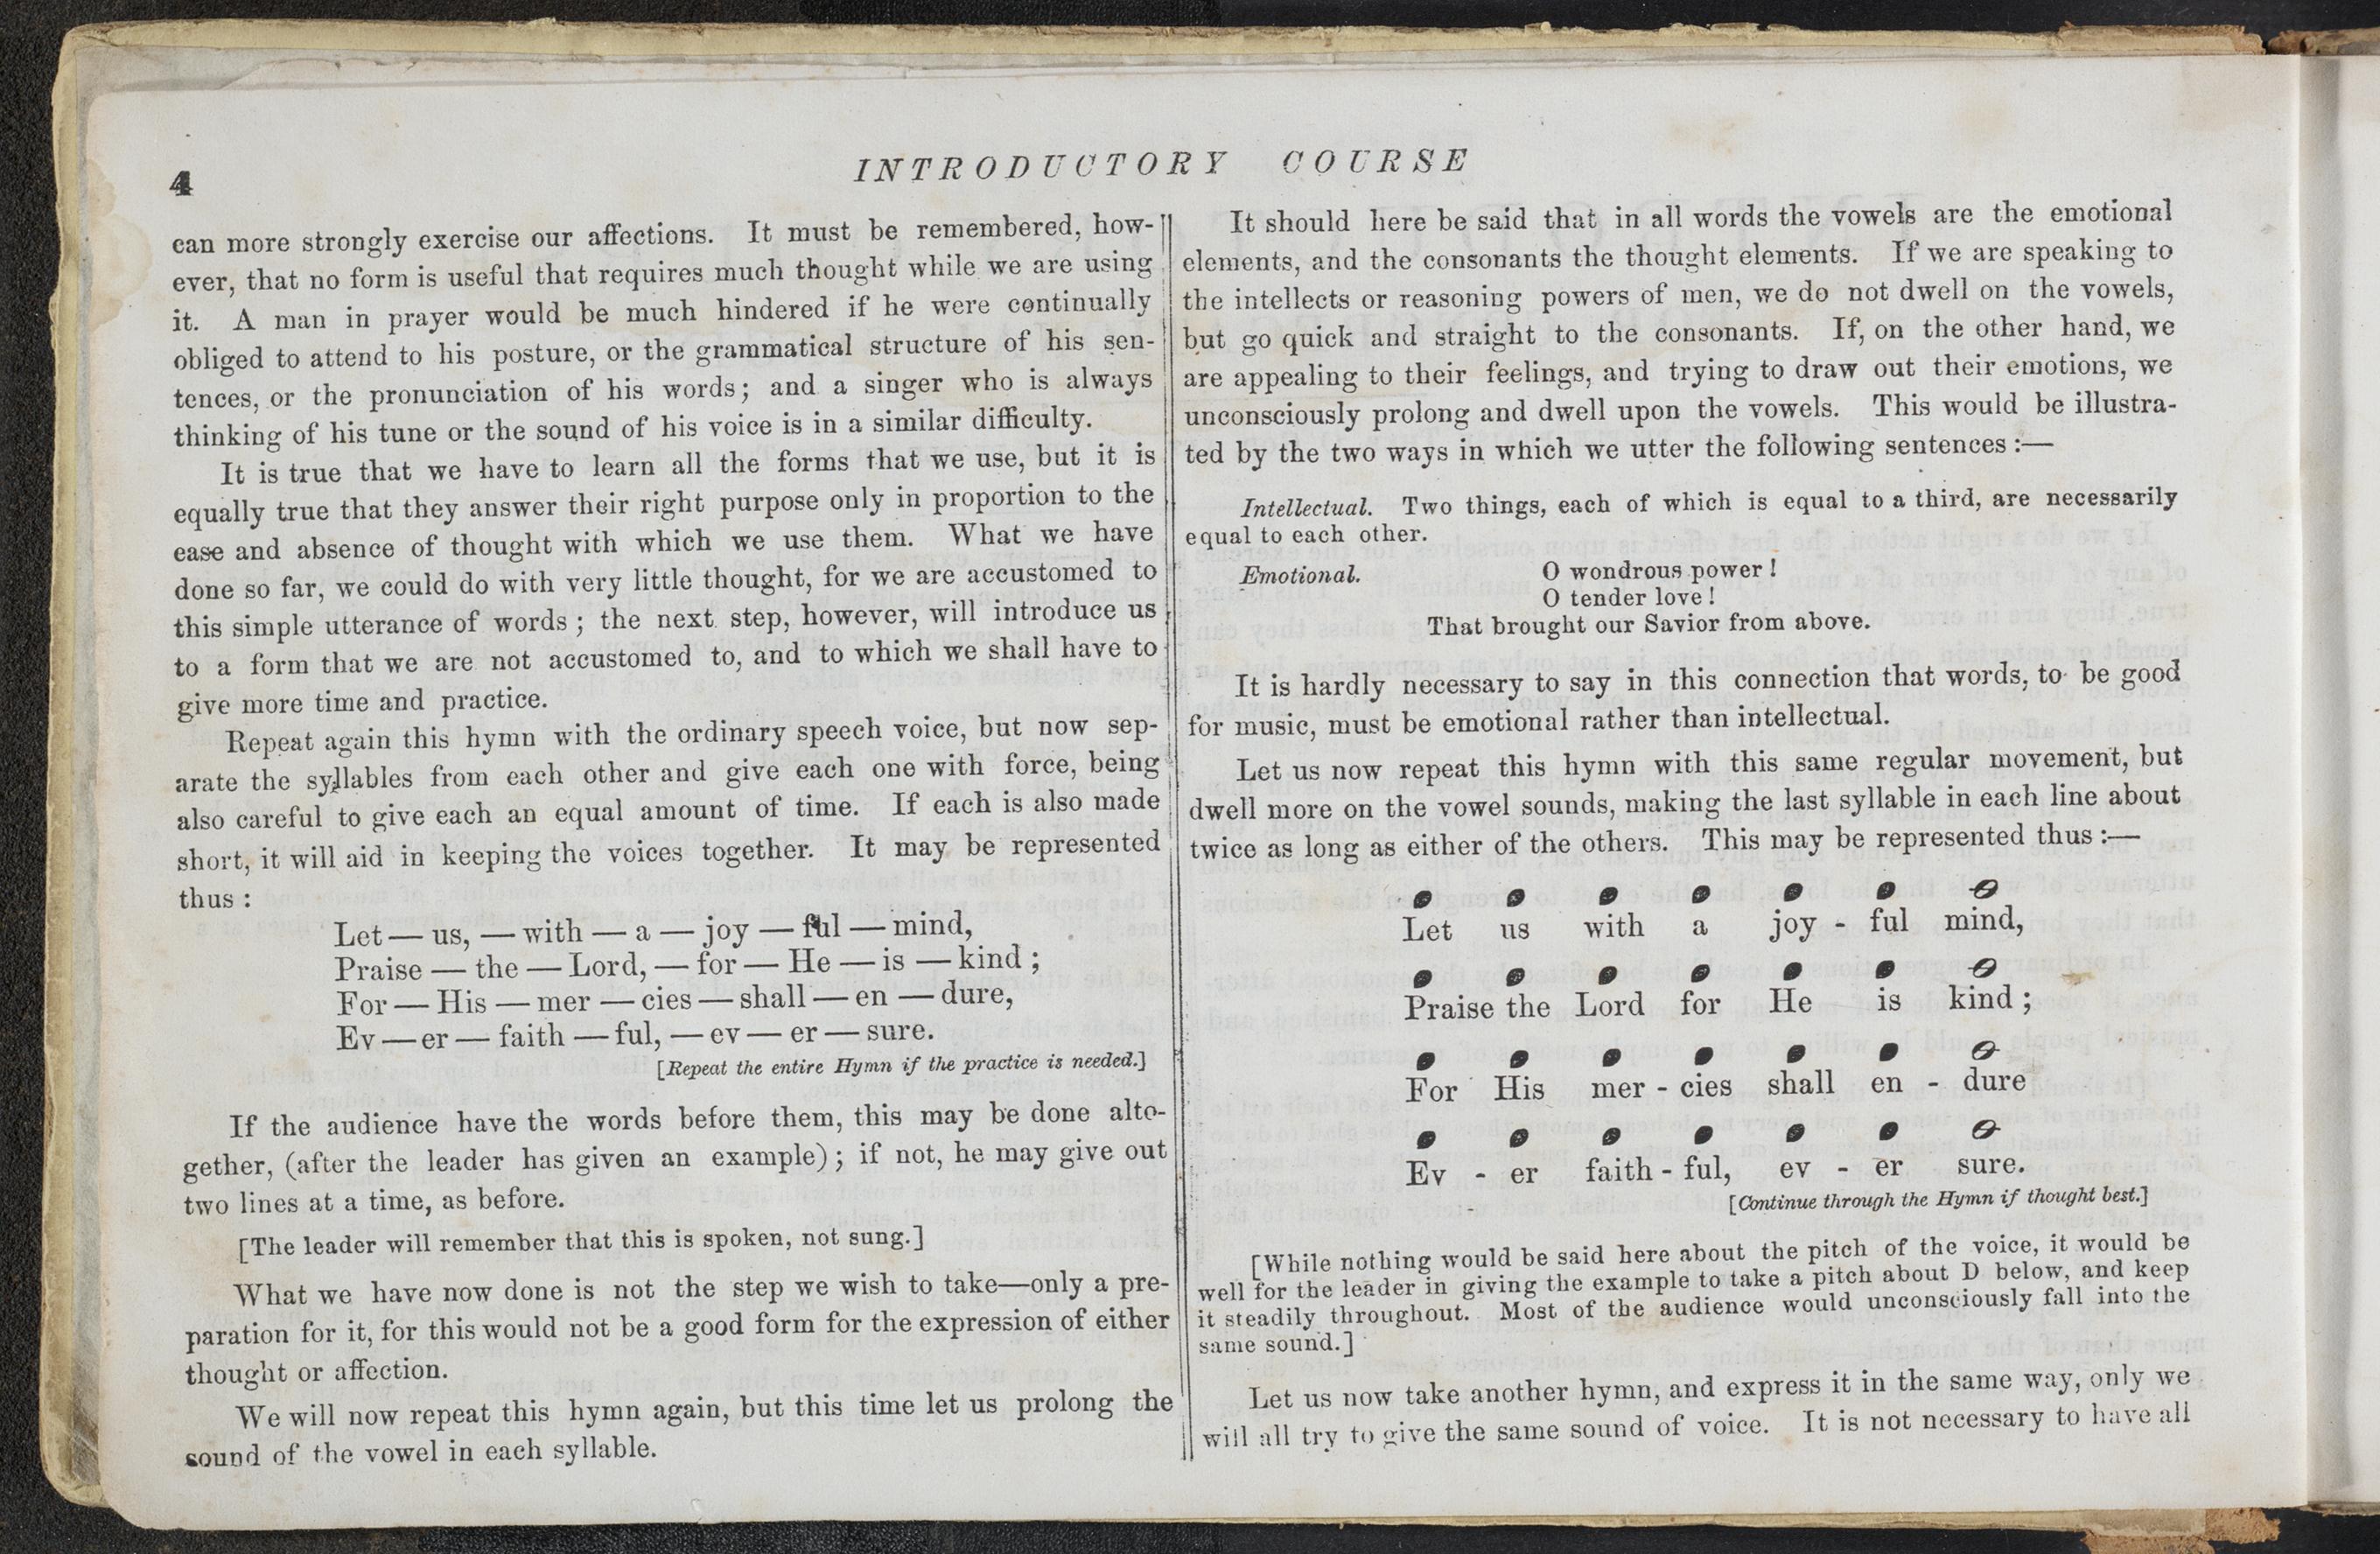 4
INTRODUCTORY COURSE
can more strongly exercise our affections. It must be remembered, how-
ever, that no form is useful that requires much thought while we are using
it. A man in prayer would be much hindered if he were continually
obliged to attend to his posture, or the grammatical structure of his sen-
tences, or the pronunciation of his words; and a singer who is always
thinking of his tune or the sound of his voice is in a similar difficulty.
It is true that we have to learn all the forms that we use, but it is
equally true that they answer their right purpose only in proportion to the
ease and absence of thought with which we use them. What we have
done so far, we could do with very little thought, for we are accustomed to
this simple utterance of words; the next step, however, will introduce us
to a form that we are not accustomed to, and to which we shall have to
give more time and practice.
Repeat again this hymn with the ordinary speech voice, but now sep-
arate the syllables from each other and give each one with force, being
also careful to give each an equal amount of time. If each is also made
short, it will aid in keeping the voices together. It may be represented
thus:
Let — us, — with — a — joy — ful — mind,
Praise — the — Lord, — for — He — is — kind;
For — His — mer — cies — shall — en — dure,
Ev — er — faith — ful, — ev — er — sure.
[Repeat the entire Hymn if the practice is needed.]
If the audience have the words before them, this may be done alto-
gether, (after the leader has given an example); if not, he may give out
two lines at a time, as before.
[The leader will remember that this is spoken, not sung.]
What we have now done is not the step we wish to take—only a pre-
paration for it, for this would not be a good form for the expression of either
thought or affection.
We will now repeat this hymn again, but this time let us prolong the
sound of the vowel in each syllable.
It should here be said that in all words the vowels are the emotional
elements, and the consonants the thought elements. If we are speaking to
the intellects or reasoning powers of men, we do not dwell on the vowels,
but go quick and straight to the consonants. If, on the other hand, we
are appealing to their feelings, and trying to draw out their emotions, we
unconsciously prolong and dwell upon the vowels. This would be illustra-
ted by the two ways in which we utter the following sentences:—
Intellectual. Two things, each of which is equal to a third, are necessarily
equal to each other.
Emotional. O wondrous power!
O tender love!
That brought our Savior from above.
It is hardly necessary to say in this connection that words, to be good
for music, must be emotional rather than intellectual.
Let us now repeat this hymn with this same regular movement, but
dwell more on the vowel sounds, making the last syllable in each line about
twice as long as either of the others. This may be represented thus:—
Let us with a joy - ful mind,
Praise the Lord for He is kind;
For His mer - cies shall en - dure
Ev - er faith - ful, ev - er sure.
[Continue through the Hymn if thought best.]
[While nothing would be said here about the pitch of the voice, it would be
well for the leader in giving the example to take a pitch about D below, and keep
it steadily throughout. Most of the audience would unconsciously fall into the
same sound.]
Let us now take another hymn, and express it in the same way, only we
will all try to give the same sound of voice. It is not necessary to have all